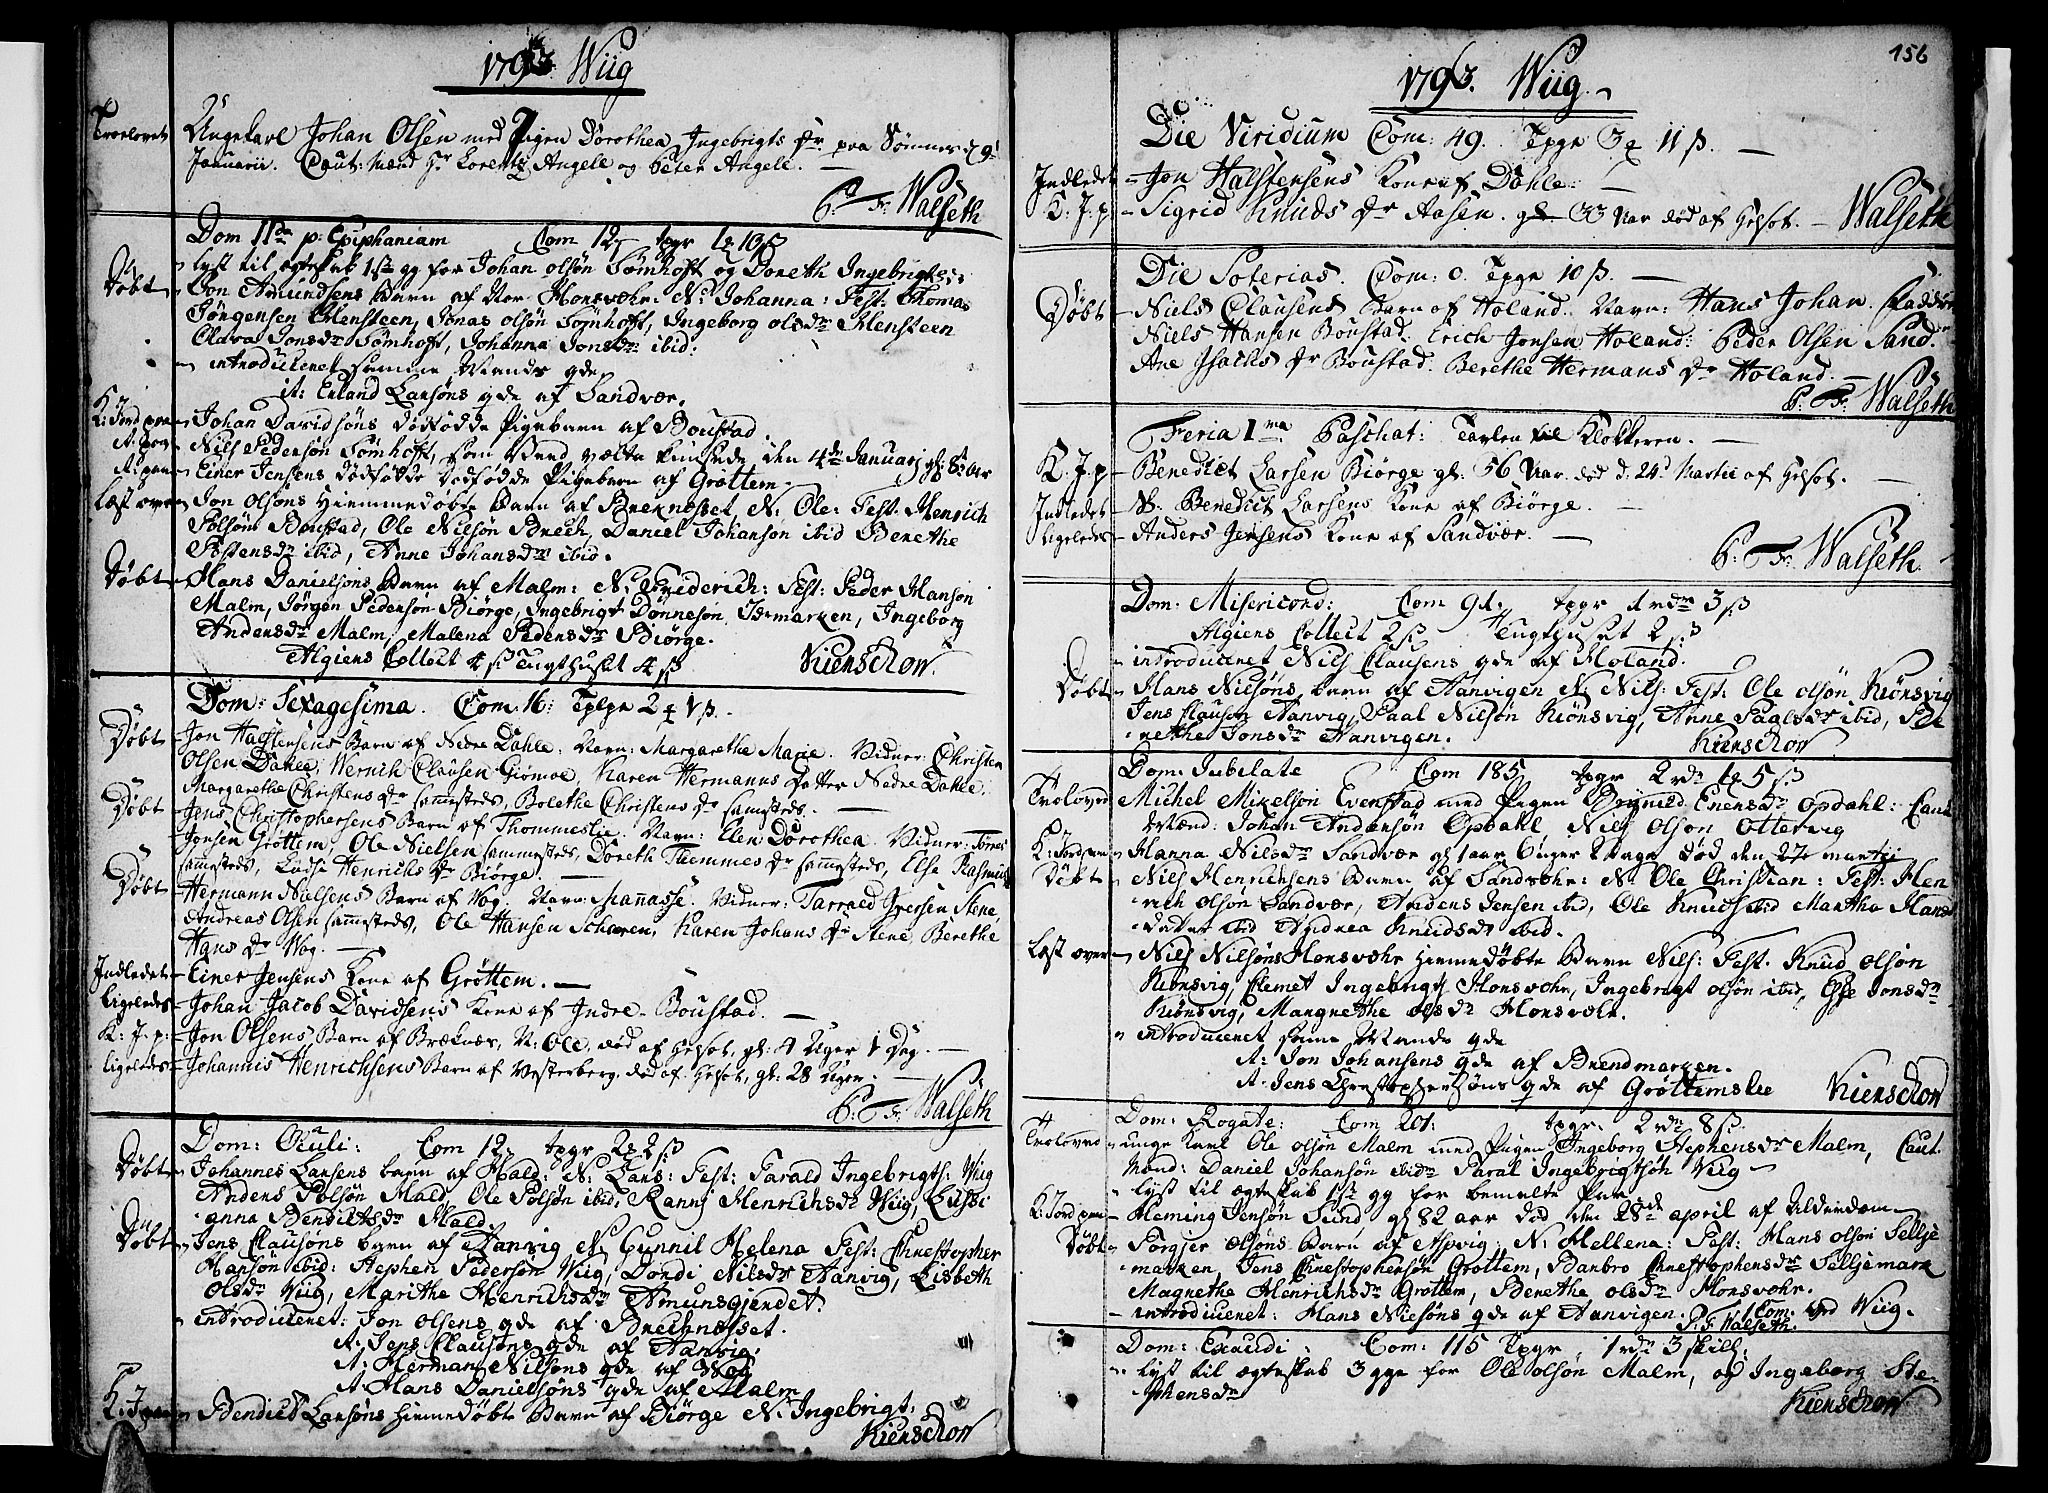 1793 Wiig
Troelovet Ungekarl Johan Olsen med Pigen Dorothea Ingebrigts Dr paa Sömnes d 9
Januarii. Caut: Mænd Hr Lorentz Angell og Peter Angell.
P: Fr. Walseth
Dom IIda p: Epiphaniam Com 12, tpgr 10 ß
lyst til ægteskab 1ste gg for Johan olsön Sömhoft og Doreth Ingebrigts
Döbt Jon Amundsens Barn af Hornsvohr. N: Johanna: Test: Thomas
Jörgensen Hensteen, Jonas olsön Sömhoft, Ingeborg olsdr Hensteen
Clara Jonsdr Sömhoft, Johanna Jonsdr ibid:
introduceret samme Mands qde
it: Erland Larsöns qde af Sandvær.
K: Jord paa Johan Davidsöns dödfödde Pigebarn af Boustad
Nils Pedersön Sömhoft, som den 4de Januarj
Einer Jensens dödfödde Pigebarn af Grøttem
Læst over Jon Olsöns Hiemmedöbte Barn af Breknesset N: Ole: Test: Henrich
Polsön Boustad, Ole Nilsön Brech, Daniel Johansön ibid Berethe
ibid, Anne Johansdr ibid.
Döbt Hans Danielsöns Barn af Malm: N: Friderich: Test: Peder Hansön
Malm, Jörgen Pedersön Biörge, Ingebrigt Dönnesön, Ingeborg
Andersdr Malm, Malena Pedersdr Biörge.
Algiens Collect 4 ß Tugthuset 4 ß Kienschow.
Dom: Sexagesima. Com. 16: Tplpr 2 1 ß.
Döbt Jon Halstensens Barn af Nedre Dahle. Navn: Margarethe Marie. Vidner: Christen
Olsen Dahle, Wernich Clausen Giömoe, Karen Hermanns Datter Nedre Dahle.
Margarethe Christens Dr sammesteds, Bolethe Christens Dr sammesteds.
Döbt Jens Christophersens Barn af Thommeslie. Navn: Elen Dorothea. Vidner:
Jonsen Grøttem, Ole Nielsen sammesteds, Doreth Flemmes Dr sammesteds, Else Rasmus
sammesteds, Henrichs Dr Biörge.
Döbt Hermann Nielsens Barn af Vog. Navn: Manasse. Vidner: Tarrald Stene,
Andreas Olsen sammesteds, Ole Hansen Scharen, Karen Johans Dr Stene, Berethe
Hans Dr Vog.
Indledet Einer Jensens Kone af Gröttem.
Ligeledes Johan Jacob Davidsens Kone af Indre Boustad.
K: J: p: Jon Olsens Barn af Brækvær, N: Ole, död af Helsot, gl: 4 Uger 1 Dag.
ligeledes Johannis Henrichsens Barn af Vesterberg, död af Helsot, gl: 28 Uger.
P: Fr. Walseth
Dom: Oculi: Com 12, tpgr 2 2 ß
Döbt Johannes Larsens barn af Hald: N: Lars: Test: Tarald Ingebrigts: Viig
Anders Polsön Hald, Ole Polsön ibid, Ranni Henrichsdr Viig,
anna Bendictsdr Hald.
Döbt Jens Clausöns barn af Aanvig N: Gunnil Helena Test: Christopher
Hansön ibid: Stephen Pedersön Viig, Dordi Nilsdr Aanvig, Lisbeth
olsdr Viig, Marithe Henrichsdr Amunsgjerdet.
introduceret: Jon olsens qde af Brechnesset.
A: Jens Clausöns qde af Aanvig.
A: Herman Nilsöns qde af Vog
A: Hans Danielsöns qde af Malm
K: J: paa Bendict Larsöns hiemedöbte Barn af Biörge N: Ingebrigt.
Kienschow
156
1793. Wiig.
Die Viridium Com: 49. Tpgr 3 11 ß.
Indledet Jon Halstensens Kone af Dahle.
K: J: p Sigrid Knuds Dr Aasen. gl 33 Aar död af Helsot. Walseth
Die Soterias. Com: 0. Tpgr 10 ß.
Döbt Niels Clausens Barn af Holand. Navn: Hans Johan. Fadder
Niels Hansen Boustad. Erich Jonsen Holand: Peder Olsen Sand.
Ane Isachs Dr Boustad. Berethe Hermans Dr Holand.
P: Fr. Walseth
Feria 1ma Paschat: Tavlen til Klokkeren.
K. J. p Benedict Larsen Biörge gl: 56 Aar död d: 24d Martii af Helsot.
Indledet Benedict Larsens Kone af Biörge.
Ligeledes Anders Jensens Kone af Sandvær.
P: Fr. Walseth.
Dom: Misericord: Com 91. tpgr 1 rdr 3 ß
Algiens Collect 2 ß Tugthuset 2 ß
introduceret Nils Clausens qde af Holand.
Döbt Hans Nilsöns barn af Aanvigen N: Nils: Test: Ole olsön Kiönsvig
Jens Clausen Aanvig, Paal Nilsön Kiönsvig, Anne Paalsdr ibid, Be
rethe Jonsdr Aanvigen. Kienschow
Dom: Jubilate Com 185, tpgr 2 rdr 1 5 ß
Troloved Michel Mikelsön Evenstad med Pigen Enersdr opdahl: Caut
Mænd: Johan Andersön Opdahl, Nils olsön Ottervig
K: Jord paa Hanna Nilsdr Sandvær gl 1 aar 6 uger 2 Dage död den 27 martii
Döbt Nils Henrichsens Barn af Sandvohr: N: Ole Christian: Test: Hen
rich olsön Sandvær, Anders Jensen ibid, Ole Knuds ibid Martha Hans
datter ibid Andrea Knudsdr ibid.
Læst over Nils Nilsöns Honsvohr Hiemedöbte Barn Nils: Test. Knud olsön
Kiönsvig, Clemet Ingebrigts Honsvohr, Ingebrigt olsön ibid, Else Jonsdr
Kiönsvig, Margrethe olsdr Honsvohr.
introduceret samme Mands qde
A: Jon Johansens qde af Brendmarken.
A: Jens Christophersöns qde af Gröttemslee Kienschow
Dom: Rogate: Com 201. tpgr. 2 rdr 8 ß.
Troloved unge Karl Ole olsön Malm med Pigen Ingeborg Stephensdr Malm, Caut.
Mænd: Daniel Johansön ibidm Taral Ingebrigtsön Viig
lyst til ægteskab 1ste gg for bemelte Par
K: Jord paa Fleming Jensön Sund, gl 82 aar död den 28de april af Alderdom
Döbt Torgier olsöns Barn af Aspvig: N: Hellena: Test: Hans olsön Seltje
marken, Jens Christophersön Grøttem, Barbro Christophersdr Seltjemark
Magrethe Henrichsdr Grøttem, Berethe olsdr Honsvohr.
introduceret: Hans Nielsöns qde af Aanvigen. P. F. Walseth. Com. ved Viig.
Dom: Exaudi: Com: 115 Tpgr 1 rdr 3 skill:
lyst til ægteskab 3 gge for Ole olsön Malm, og Ingeborg Ste
phensdr
Kienschow